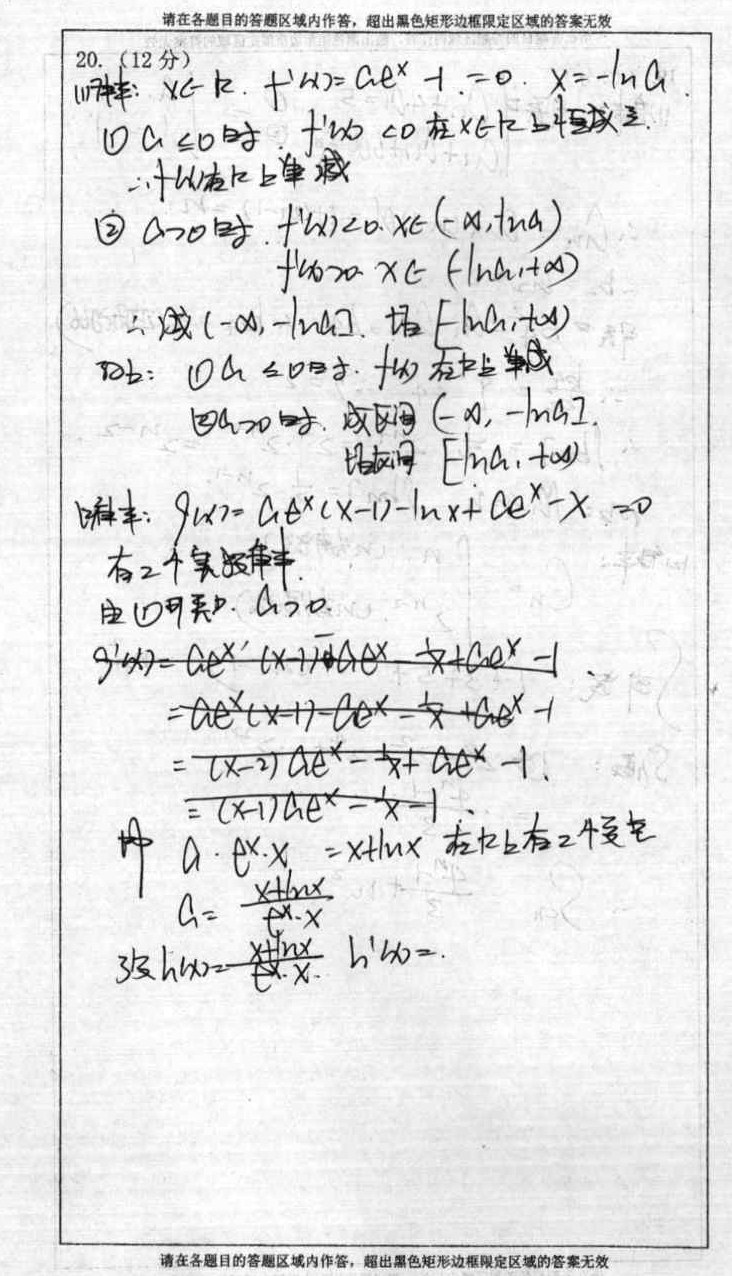 请在各题目的答题区域内作答，超出黑色矩形边框限定区域的答案无效
20.（12分）
(1)解: x∈R. f'(x)=ae^x -1.=0. x=-ln a.
① a≤0时. f'(x)<0在x∈R上恒成立.
∴f(x)在R上单减
② a>0时. f'(x)<0. x∈(-∞,-ln a)
f'(x)>0. x∈(-ln a,+∞)
∴减(-∞,-ln a]. 增[-ln a,+∞)
综上: ① a≤0时. f(x)在R上单减
② a>0时. 减区间(-∞,-ln a].
增区间[-ln a,+∞)
(2)解: g(x)=ae^x(x-1)-ln x+ae^x-x=0
有2个实数解.
由(1)可知. a>0.
g'(x)=ae^x(x-1)+ae^x-1/x+ae^x-1
=ae^x(x-1)-ae^x-1/x+ae^x-1
=(x-2)ae^x-1/x+ae^x-1.
=(x-1)ae^x-1/x-1.
即 a·e^x·x=x+ln x 在R上有2个
a=(x+ln x)/(e^x·x)
设h(x)=(x+ln x)/(e^x·x). h'(x)=.
请在各题目的答题区域内作答，超出黑色矩形边框限定区域的答案无效